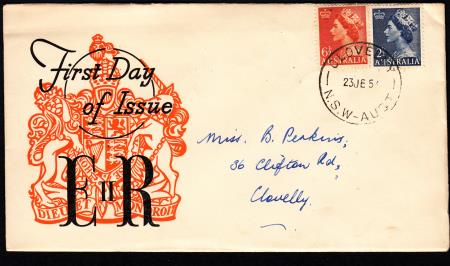 First Day
of Issue
E II R
DIEU ET MON DROIT
AUSTRALIA
AUSTRALIA
CLOVELLY
23JE54
N.S.W-AUST
Miss. B. Perkins,
36 Clifton Rd,
Clovelly.